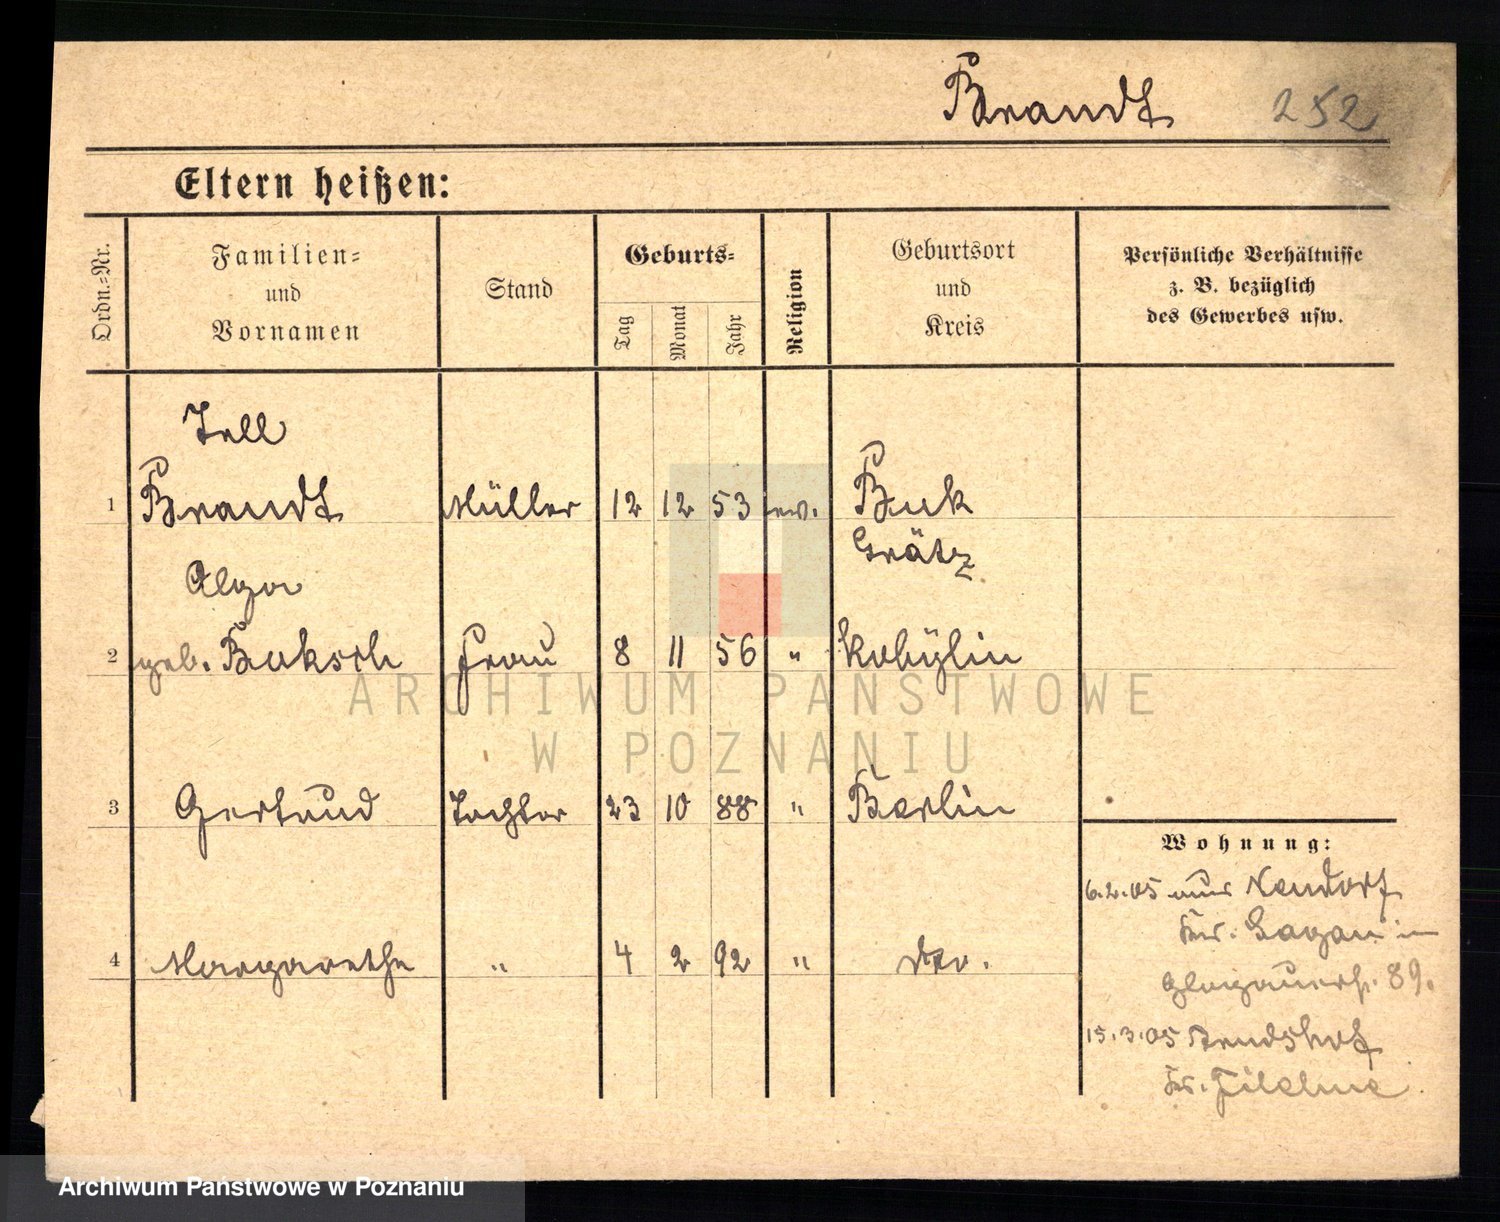 Brandt 252
Eltern heißen:
Ordn.-Nr.
Familien-
und
Vornamen
Stand
Geburts-
Tag
Monat
Jahr
Religion
Geburtsort
und
Kreis
Persönliche Verhältnisse
z. B. bezüglich
des Gewerbes usw.
Tell
1 Brandt Müller 12 12 53 ev. Buk
Grätz
Olga
2 geb. Baksch Frau 8 11 56 " Kobylin
3 Gertrud Tochter 23 10 88 " Berlin
4 Margarethe " 4 2 92 " dto.
Wohnung:
6.2.05 aus Neudorf
Kr. Sagan in
Glogauerstr. 89.
15.3.05
Kr. Filehne
ARCHIWUM PAŃSTWOWE
W POZNANIU
Archiwum Państwowe w Poznaniu